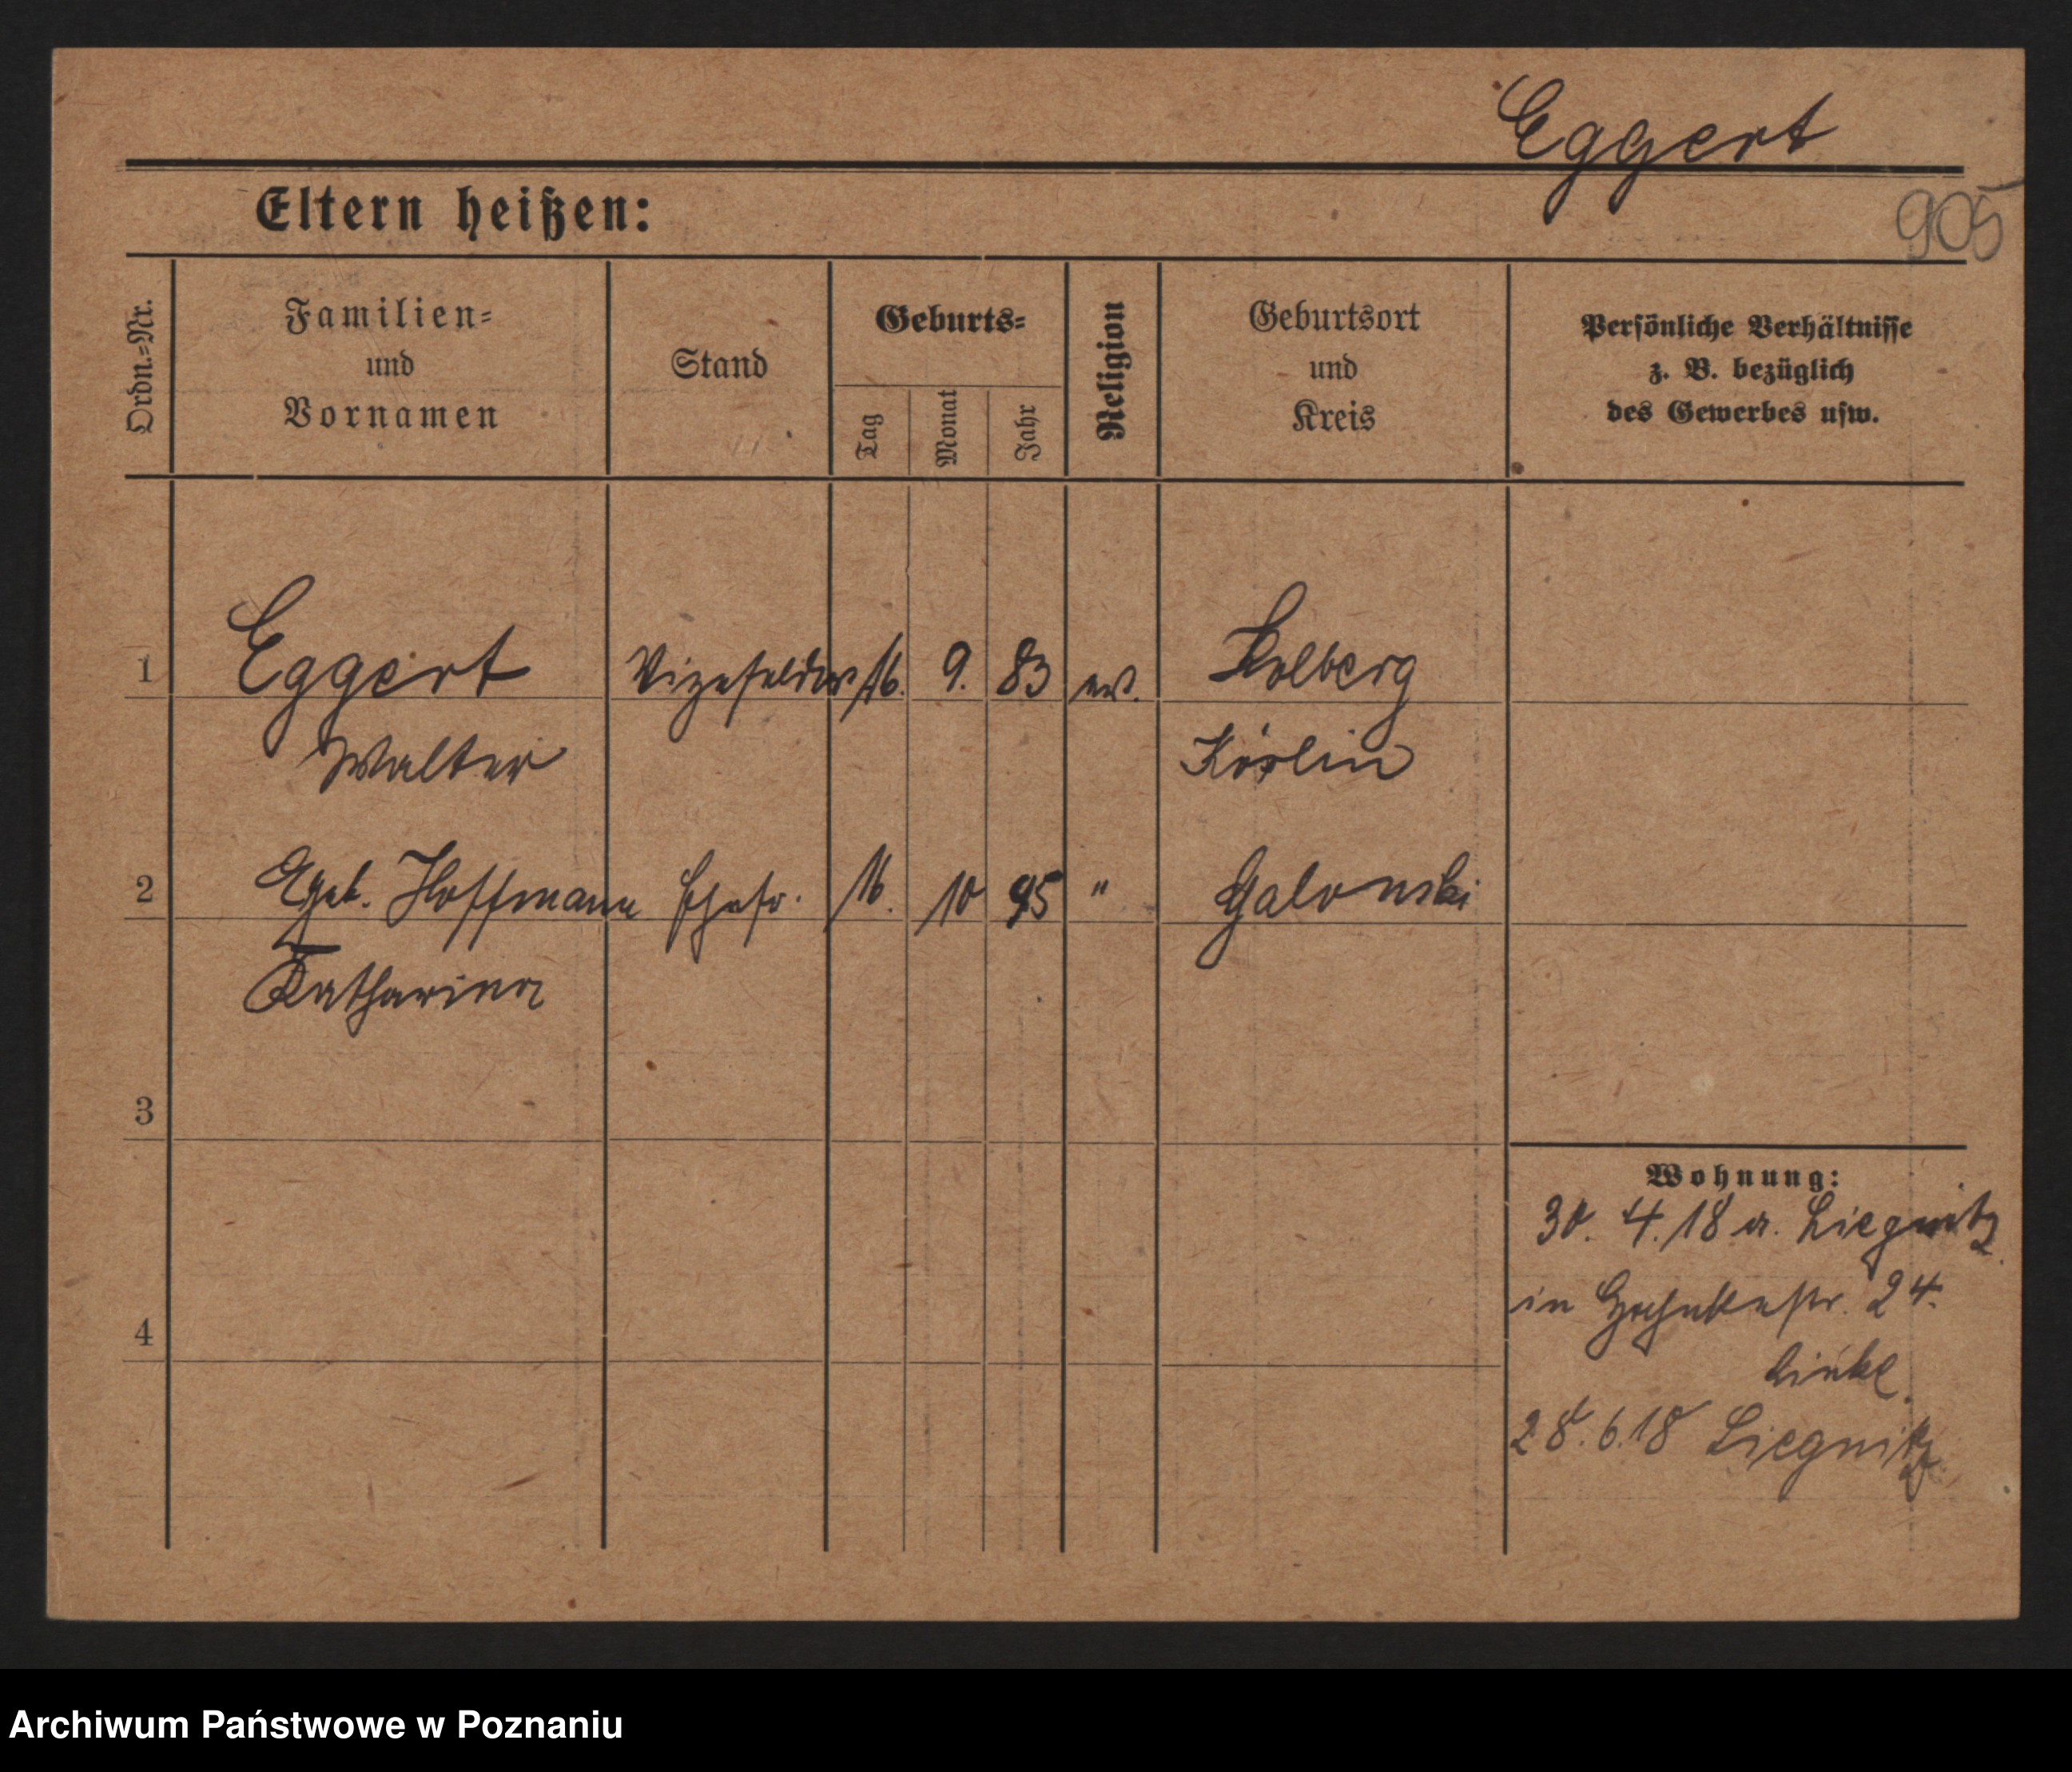 Eggert
905
Eltern heißen:
Ordn.-Nr.
Familien-
und
Vornamen
Stand
Geburts-
Tag
Monat
Jahr
Religion
Geburtsort
und
Kreis
Persönliche Verhältnisse
z. B. bezüglich
des Gewerbes usw.
1 Eggert Vizefeldw 16. 9. 83 ev. Kolberg
Walter Körlin
2 geb. Hoffmann Ehefr. 16. 10 95 " Galonski
Katharina
3
4
Wohnung:
30. 4. 18 a. Liegnitz
in 24.
28. 6. 18 Liegnitz
Archiwum Państwowe w Poznaniu